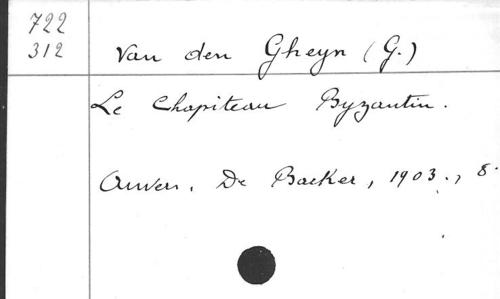 722
312
Van den Gheyn (G.)
Le Chapiteau Byzantin.
Anvers, De Backer, 1903., 8.